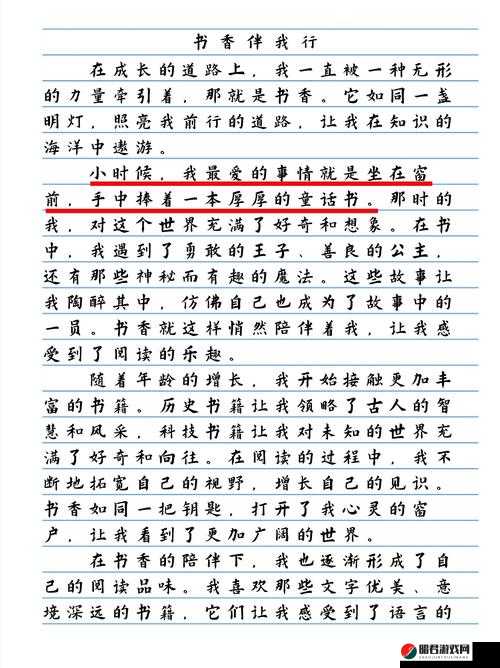 书香伴我行
在成长的道路上，我一直被一种无形
的力量牵引着，那就是书香。它如同一盏
明灯，照亮我前行的道路，让我在知识的
海洋中遨游。
小时候，我最爱的事情就是坐在窗
前，手中捧着一本厚厚的童话书。那时的
我，对这个世界充满了好奇和想象。在书
中，我遇到了勇敢的王子、善良的公主，
还有那些神秘而有趣的魔法。这些故事让
我陶醉其中，仿佛自己也成为了故事中的
一员。书香就这样悄然陪伴着我，让我感
受到了阅读的乐趣。
随着年龄的增长，我开始接触更加丰
富的书籍。历史书籍让我领略了古人的智
慧和风采，科技书籍让我对未知的世界充
满了好奇和向往。在阅读的过程中，我不
断地拓宽自己的视野，增长自己的见识。
书香如同一把钥匙，打开了我心灵的窗
户，让我看到了更加广阔的世界。
在书香的陪伴下，我也逐渐形成了自
己的阅读品味。我喜欢那些文字优美、意
境深远的书籍，它们让我感受到了语言的
明君游戏网